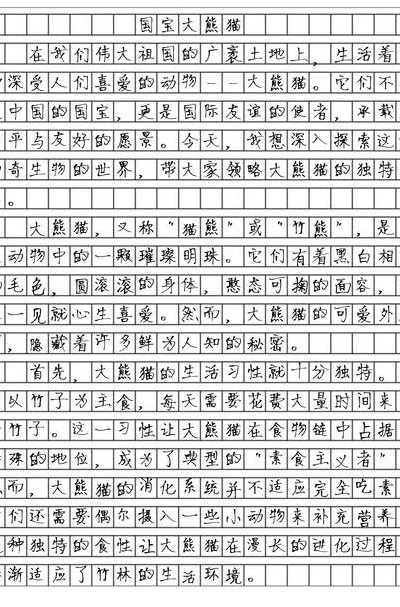 国宝大熊猫
在我们伟大祖国的广袤土地上，生活着
深受人们喜爱的动物--大熊猫。它们不
中国的国宝，更是国际友谊的使者，承载
平与友好的愿景。今天，我想深入探索这
奇生物的世界，带大家领略大熊猫的独特
。
大熊猫，又称"猫熊"或"竹熊"，是
动物中的一颗璀璨明珠。它们有着黑白相
毛色，圆滚滚的身体，憨态可掬的面容，
一见就心生喜爱。然而，大熊猫的可爱外
，隐藏着许多鲜为人知的秘密。
首先，大熊猫的生活习性就十分独特。
以竹子为主食，每天需要花费大量时间来
竹子。这一习性让大熊猫在食物链中占据
殊的地位，成为了典型的"素食主义者"
而，大熊猫的消化系统并不适应完全吃素
们还需要偶尔摄入一些小动物来补充营养
种独特的食性让大熊猫在漫长的进化过程
渐适应了竹林的生活环境。